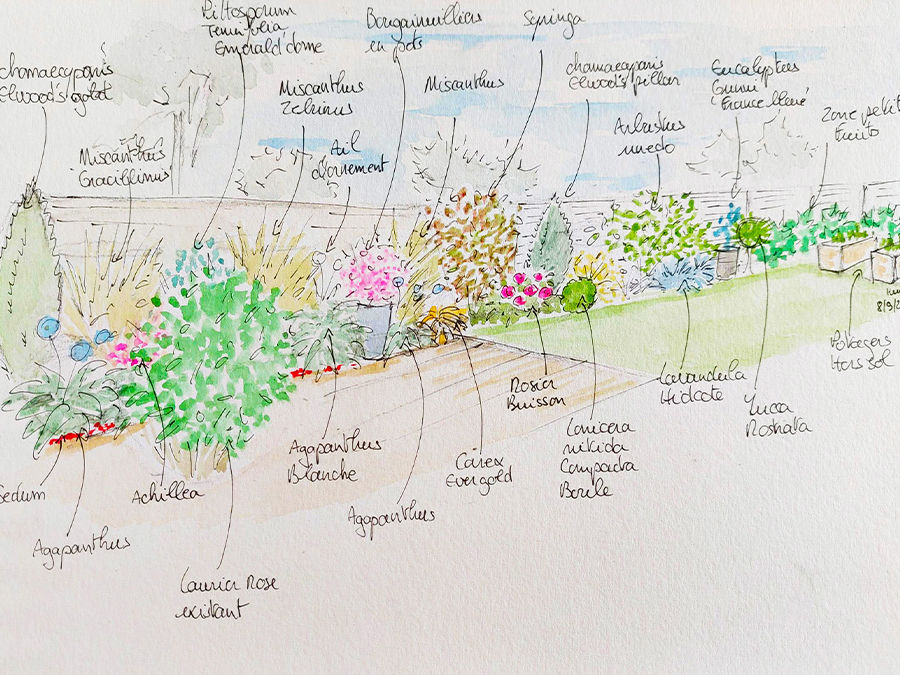 Pittosporum
Tenuifolia
Emerald dome
Bougainvilliers
en pots
Syringa
chamaecyparis
Elwood's gold
Miscanthus
Zebrinus
Miscanthus
chamaecyparis
Elwood's pillar
Eucalyptus
Gunni
France bleu
Zone petits
fruits
Miscanthus
Gracillimus
Ail
d'ornement
Arbustus
unedo
Potagers
Hors sol
Rosier
Buisson
Lavandula
Hidcote
Yucca
Rostrata
Lonicera
nitida
Compacta
Boule
Agapanthus
Blanche
Carex
Evergold
Sedum
Achillea
Agapanthus
Agapanthus
Laurier Rose
existant